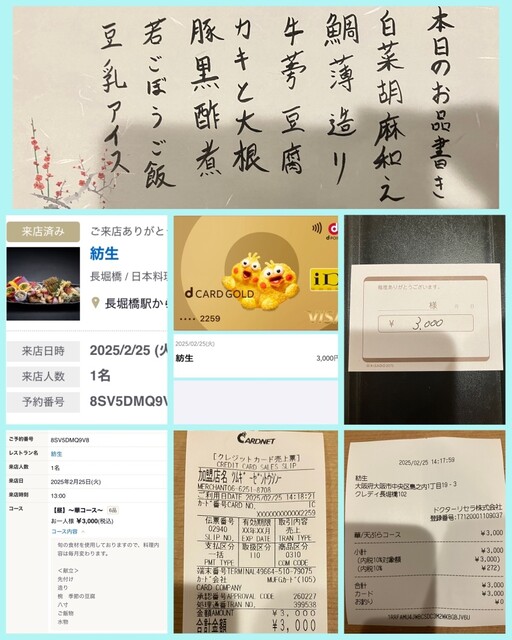 本日のお品書き
白菜胡麻和え
鯛薄造り
牛蒡豆腐
カキと大根
豚黒酢煮
若ごぼうご飯
豆乳アイス
来店済み
ご来店ありがと
紡生
長堀橋 / 日本料理
長堀橋駅から
来店日時 2025/2/25 (火
来店人数 1名
予約番号 8SV5DMQ9V
d CARD GOLD
iD
VISA
•••• 2259
2025/02/25(火)
紡生 3,000円
毎度ありがとうございます。
様
¥ 3,000
ご予約番号 8SV5DMQ9V8
レストラン名 紡生
来店人数 1名
来店日 2025年2月25日(火)
来店時刻 13:00
コース 【昼】〜華コース〜 8品
お一人様 ¥3,000(税込)
コース内容
旬の食材を使用しておりますので、料理内
容は毎月変わります。
<献立>
先付け
造り
椀 季節の豆腐
八寸
ご飯物
水物
CARDNET
[クレジットカード売上票]
CREDIT CARD SALES SLIP
加盟店名 ﾂﾑｷﾞ-ｾﾞﾝﾄｳｼﾞ-
MERCHANT06-6251-8708
ご利用日DATE 2025/02/25 14:18:21
ｶｰﾄﾞ番号CARD NO. IC
XXXXXXXXXXXX2259
伝票番号 有効期限 取引内容
02940 XX年XX月 売上
SLIP NO. EXP DATE TRAN TYPE
支払区分 取扱区分 商品区分
一括 110 0310
PMT TYPE COM CODE
端末番号TERMINAL49664-510-79075
ｶｰﾄﾞ会社 MUFGカード(105)
CARD COMPANY
承認番号APPROVAL CODE 260227
処理通番TRAN NO. 399538
金額AMOUNT ¥3,000
合計金額 ¥3,000
2025/02/25 14:17:59
紡生
大阪府大阪市中央区島之内1丁目19-3
クレディ長堀橋102
ドクターリセラ株式会社
登録番号:T7120001109037
華/天ぷらコース ¥3,000
小計 ¥3,000
(内税10%対象額) ¥3,000)
(内税10% ¥272)
合計 ¥3,000
カード ¥3,000
お釣り ¥0